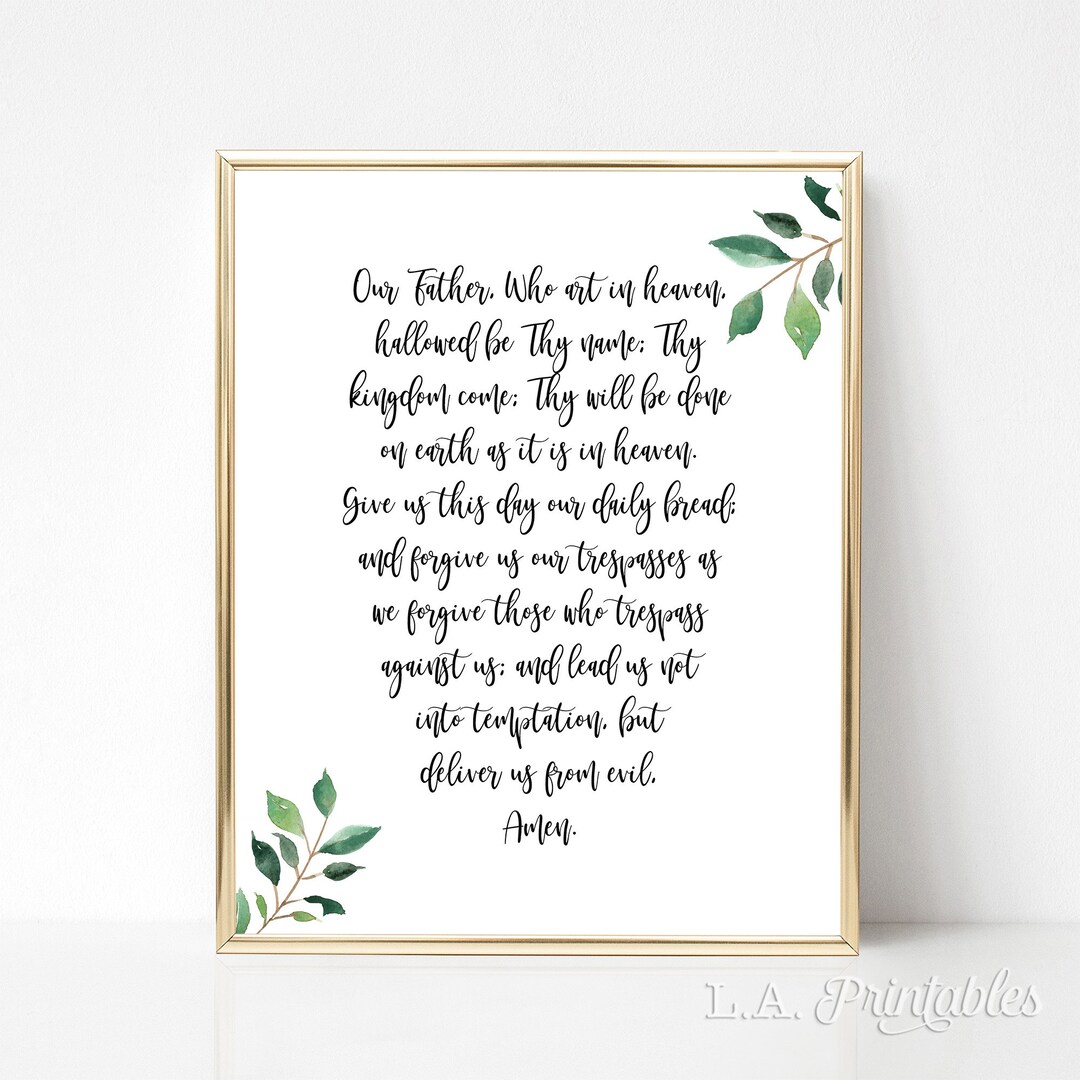 Our Father, Who art in heaven,
hallowed be Thy name; Thy
kingdom come; Thy will be done
on earth as it is in heaven.
Give us this day our daily bread;
and forgive us our trespasses as
we forgive those who trespass
against us; and lead us not
into temptation, but
deliver us from evil.
Amen.
L.A. Printables